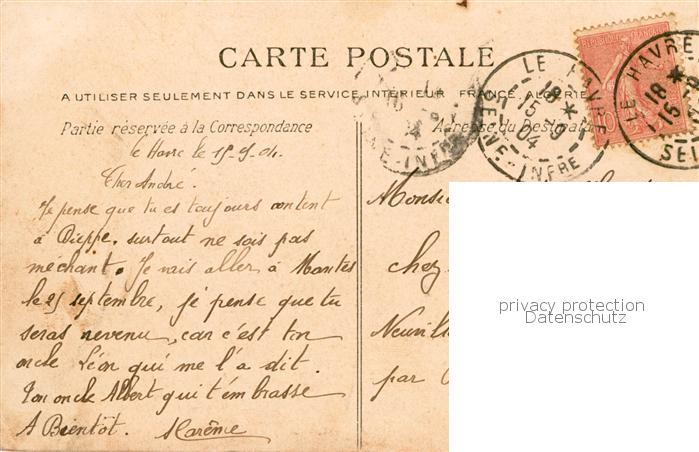 CARTE POSTALE
A UTILISER SEULEMENT DANS LE SERVICE INTÉRIEUR FRANCE ALGÉRIE
Partie réservée à la Correspondance
Adresse du Destinata
RÉPUBLIQUE FRANÇAISE
10
LE HAVRE
18
15 - 9
04
SEINE-INFRE
LE HAVRE
18
15
SEI
NE-INFRE
le Havre le 15.9.04.
Cher André.
Je pense que tu es toujours content
à Dieppe, surtout ne sois pas
méchant. Je vais aller à Mantes
le 25 septembre, je pense que tu
seras revenu, car c'est ton
oncle Léon qui me l'a dit.
Ton oncle Albert qui t'embrasse
A Bientôt.
Monsieu
chez
par
privacy protection
Datenschutz